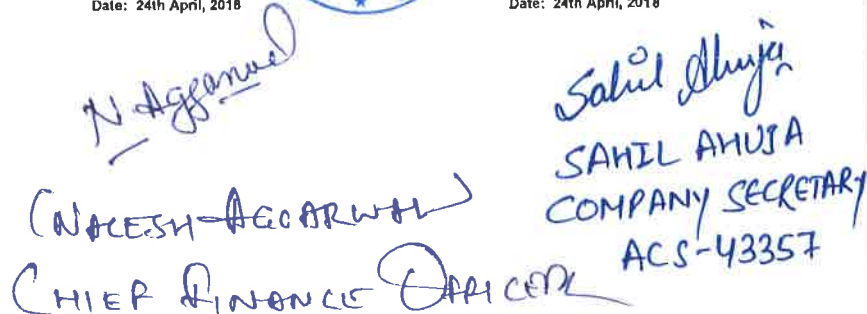 Date: 24th April, 2018
Date: 24th April, 2018
N Aggarwal
(NARESH AGGARWAL)
CHIEF FINANCE OFFICER
Sahil Ahuja
SAHIL AHUJA
COMPANY SECRETARY
ACS-43357